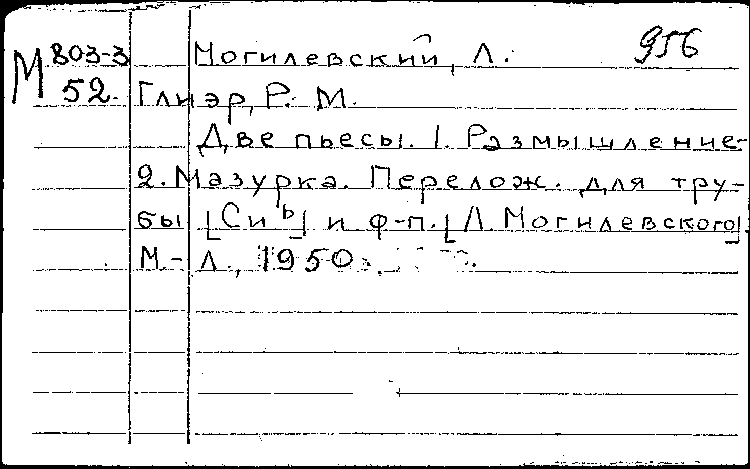 М 803-3 Могилевский, Л. 956
52. Глиэр, Р. М.
Две пьесы. 1. Размышление.
2. Мазурка. Перелож. для тру-
бы [Си ь] и ф-п. [Л. Могилевского].
М.-Л., 1950.